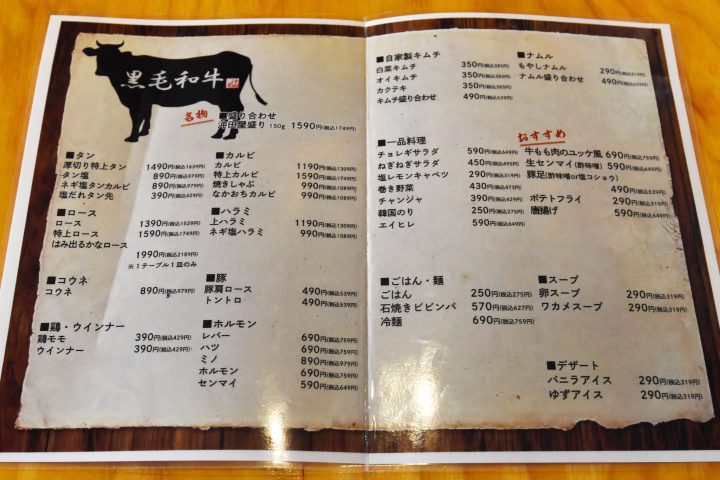 黒毛和牛
名物
■盛り合わせ
沖田屋盛り 150g 1590円(税込1749円)
■タン
厚切り特上タン 1490円(税込1639円)
タン塩 890円(税込979円)
ネギ塩タンカルビ 890円(税込979円)
塩だれタン先 390円(税込429円)
■カルビ
カルビ 1190円(税込1309円)
特上カルビ 1590円(税込1749円)
焼きしゃぶ 990円(税込1089円)
なかおちカルビ 990円(税込1089円)
■ロース
ロース 1390円(税込1529円)
特上ロース 1590円(税込1749円)
はみ出るかなロース
1990円(税込2189円)
※1テーブル1皿のみ
■ハラミ
上ハラミ 1190円(税込1309円)
ネギ塩ハラミ 990円(税込1089円)
■コウネ
コウネ 890円(税込979円)
■豚
豚肩ロース 490円(税込539円)
トントロ 490円(税込539円)
■鶏・ウインナー
鶏モモ 390円(税込429円)
ウインナー 390円(税込429円)
■ホルモン
レバー 690円(税込759円)
ハツ 690円(税込759円)
ミノ 890円(税込979円)
ホルモン 690円(税込759円)
センマイ 590円(税込649円)
■自家製キムチ
白菜キムチ 350円(税込385円)
オイキムチ 350円(税込385円)
カクテキ 350円(税込385円)
キムチ盛り合わせ 490円(税込539円)
■ナムル
もやしナムル 290円(税込319円)
ナムル盛り合わせ 490円(税込539円)
■一品料理
チョレギサラダ 590円(税込649円)
ねぎねぎサラダ 450円(税込495円)
塩レモンキャベツ 290円(税込319円)
巻き野菜 430円(税込473円)
チャンジャ 390円(税込429円)
韓国のり 250円(税込275円)
エイヒレ 590円(税込649円)
おすすめ
牛もも肉のユッケ風 690円(税込759円)
生センマイ(酢味噌) 590円(税込649円)
豚足(酢味噌or塩コショウ)
490円(税込539円)
ポテトフライ 290円(税込319円)
唐揚げ 590円(税込649円)
■ごはん・麺
ごはん 250円(税込275円)
石焼きビビンバ 570円(税込627円)
冷麺 690円(税込759円)
■スープ
卵スープ 290円(税込319円)
ワカメスープ 290円(税込319円)
■デザート
バニラアイス 290円(税込319円)
ゆずアイス 290円(税込319円)